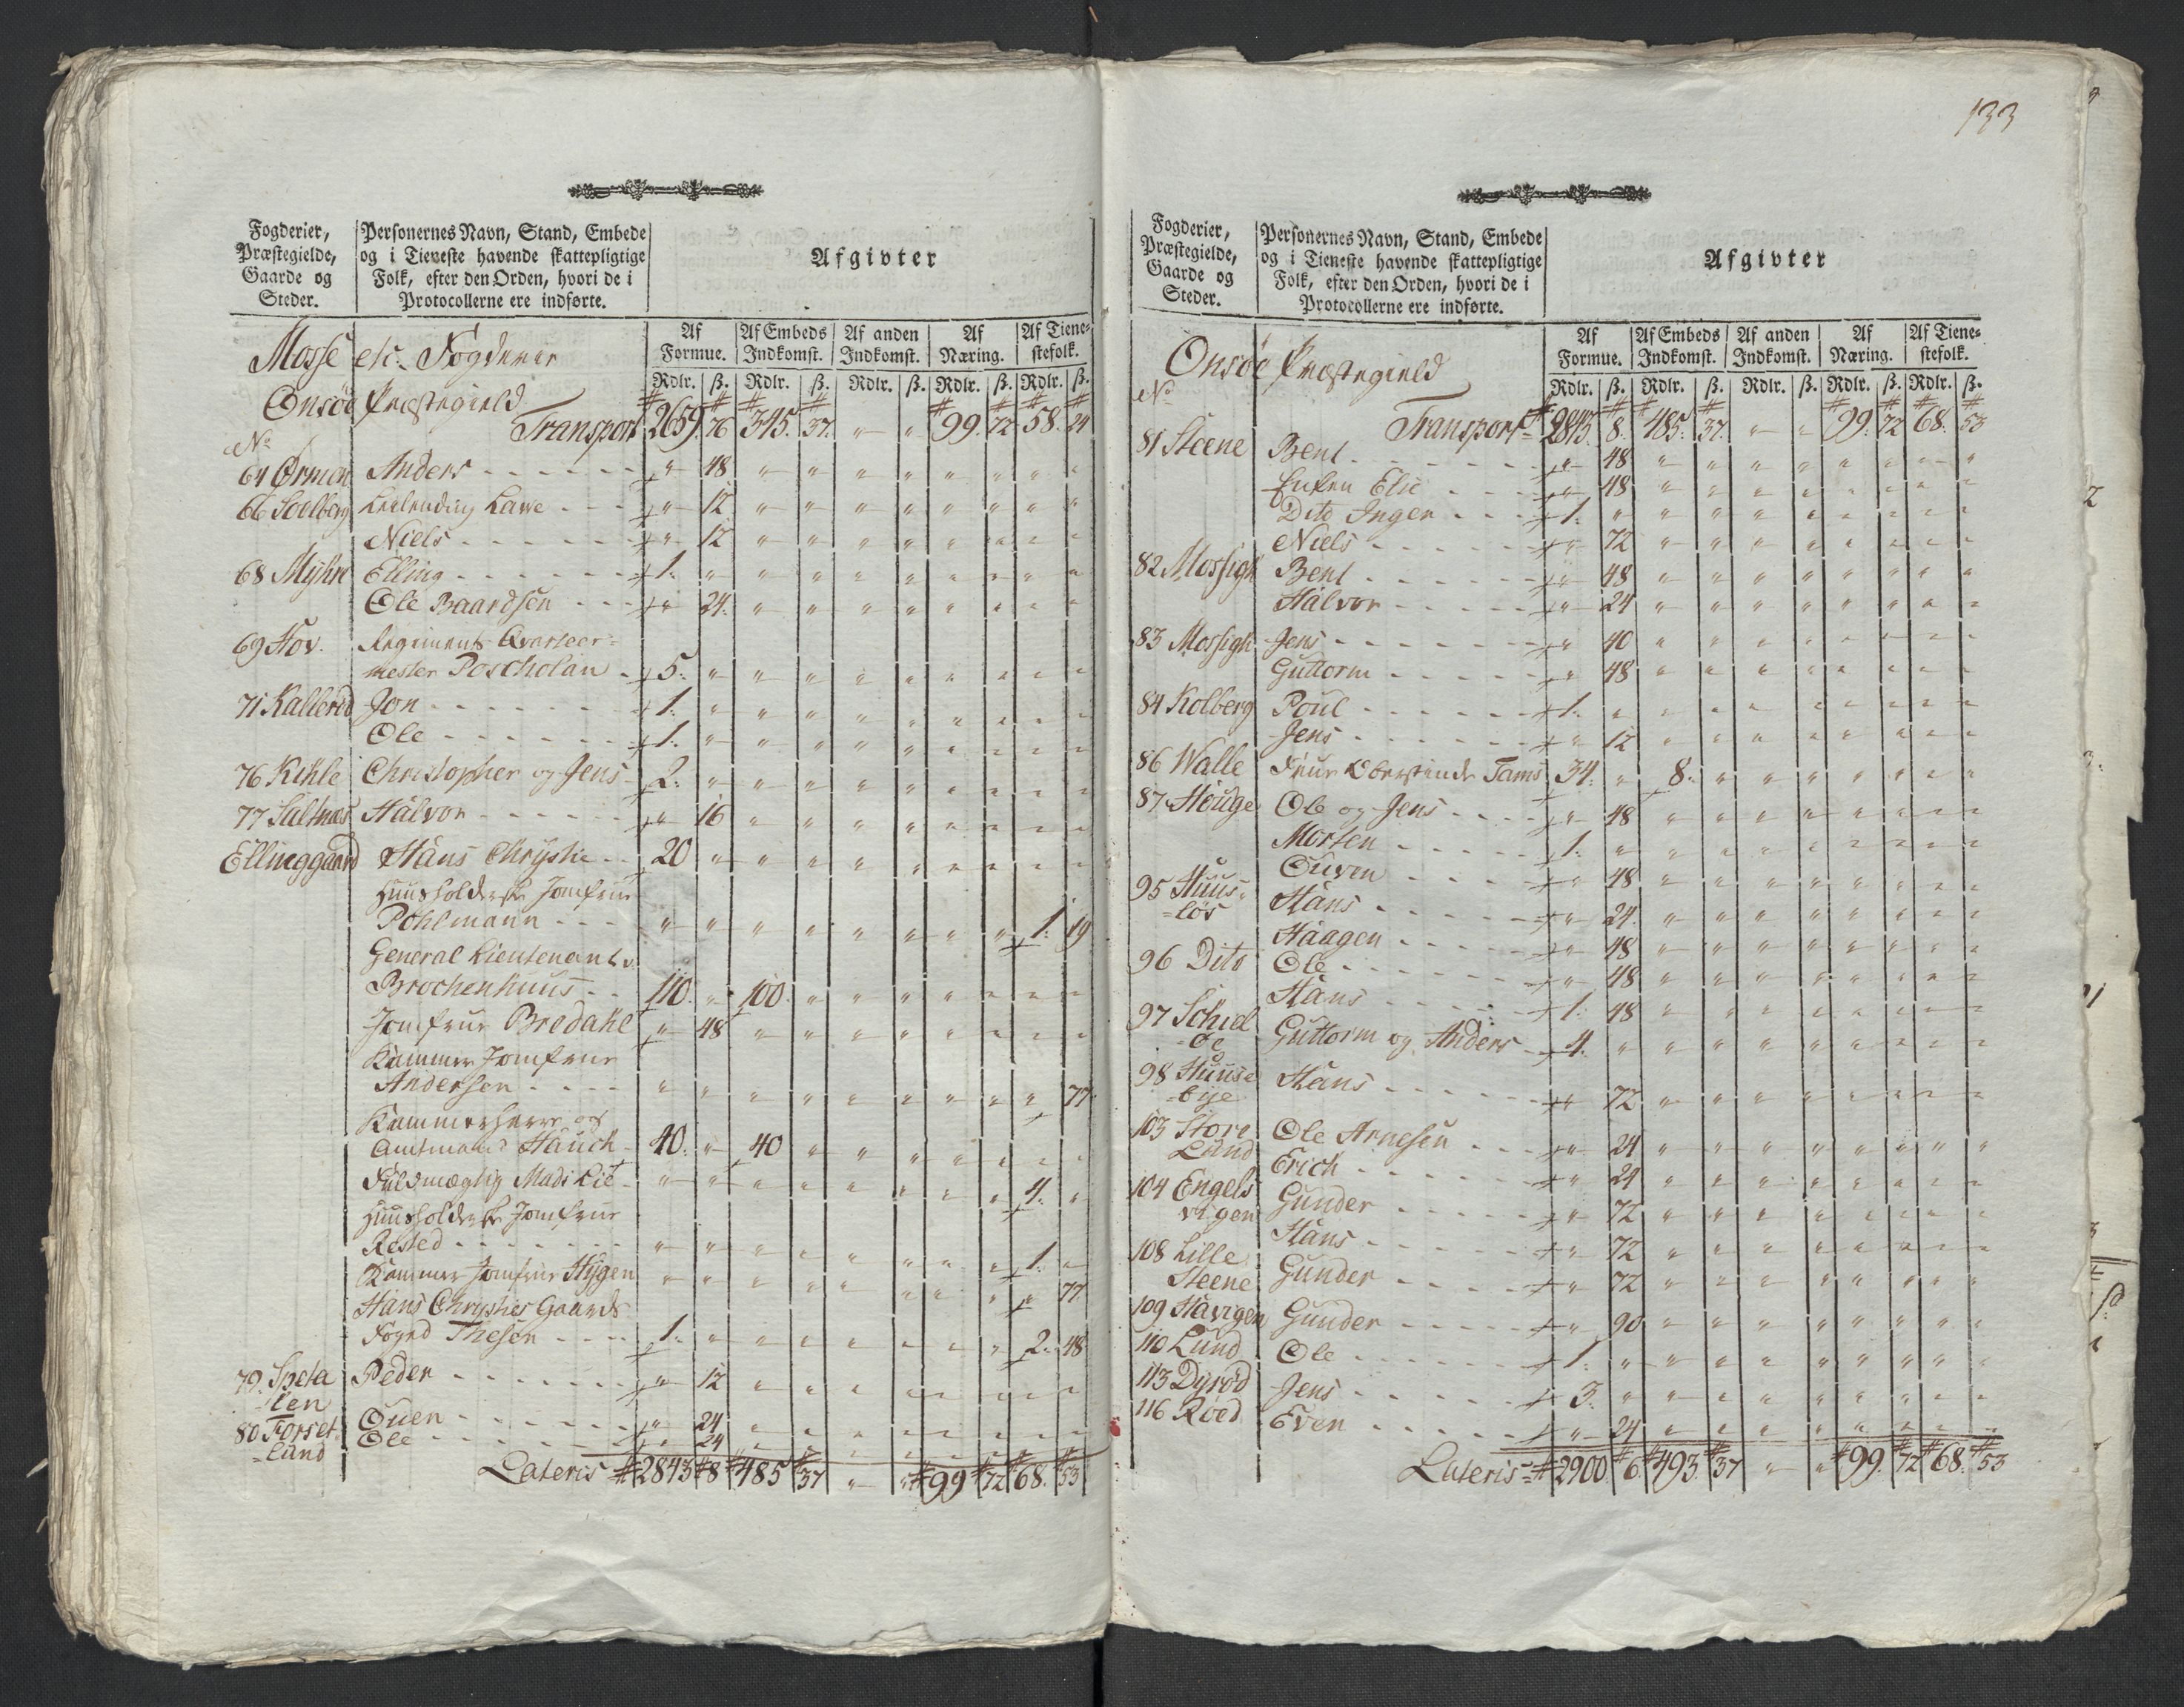 Fogderier,
Præstegielde,
Gaarde og
Steder.
Personernes Navn, Stand, Embede
og i Tieneste havende skattepligtige
Folk, efter den Orden, hvori de i
Protocollerne ere indførte.
Afgivter
Af Formue. Af Embeds Indkomst. Af anden Indkomst. Af Næring. Af Tienestefolk.
Rdlr. ß. Rdlr. ß. Rdlr. ß. Rdlr. ß. Rdlr. ß.
Mosse etc. Fogderier
Onsøe Præstegield
No Transport 2659. 76 345. 37. " " 99. 72 58. 24
64 Ørmen Anders - - - " 48 " " " " " " " "
66 Soelberg Lars - - - " 12 " " " " " " " "
Niels - - - " 12 " " " " " " " "
68 Myhre Elling - - - 1. " " " " " " " " "
Ole Baardsen - - - " 24. " " " " " " " "
69 Hov. Regiments Qvarteer=
mester Poscholan - 5. " " " " " " " " "
71 Kallerød Jon - - - 1. " " " " " " " " "
Ole - - - 1. " " " " " " " " "
76 Kihle Christopher og Jens - 2. " " " " " " " " "
77 Saltnæs Halvor - - - " 16 " " " " " " " "
Ellinggaard Hans Chrystie - - 20 " " " " " " " " "
Huusholderske Jomfrue
Pohlmann - - - " " " " " " " " 1. 19
General Lieutenant v.
Brochenhuus - - 110. " 100. " " " " " " "
Jomfrue Bredahl " 48 " " " " " " " "
Kammer Jomfrue
Andersen - - - " " " " " " " " " 77.
Kammerherre og
Amtmand Hauch - 40. " 40 " " " " " " "
Fuldmægtig - " " " " " " " " 4. "
Huusholderske Jomfrue
Rested - - - " " " " " " " " 1. "
Kammer Jomfrue Hygen " " " " " " " " " 77
Hans Chrysties Gaards
Foged Thesen - - - 1. " " " " " " " 2. 48
79. Speta Peder - - - " 12 " " " " " " " "
=len
80 Forset Ouen - - - " 24 " " " " " " " "
=lund Ole - - - " 24 " " " " " " " "
Lateris 2843 8 485 37 " " 99 72 68. 53
133
Fogderier,
Præstegielde,
Gaarde og
Steder.
Personernes Navn, Stand, Embede
og i Tieneste havende skattepligtige
Folk, efter den Orden, hvori de i
Protocollerne ere indførte.
Afgivter
Af Formue. Af Embeds Indkomst. Af anden Indkomst. Af Næring. Af Tienestefolk.
Rdlr. ß. Rdlr. ß. Rdlr. ß. Rdlr. ß. Rdlr. ß.
Onsøe Præstegield
No Transport 2843. 8. 485. 37. " " 99. 72 68. 53
81 Steene Bent - - - " 48 " " " " " " " "
Enken Elie - - - " 48 " " " " " " " "
Dito Inger - - - 1. " " " " " " " " "
Niels - - - " 72 " " " " " " " "
82 Mossigh Bent - - - " 48 " " " " " " " "
Halvor - - - " 24 " " " " " " " "
83 Mossigh Jens - - - " 40 " " " " " " " "
Guttorm - - - " 48 " " " " " " " "
84 Kolberg Poul - - - 1. " " " " " " " " "
Jens - - - " 12 " " " " " " " "
86 Walle Frue Oberstinde Tams 34. " 8. " " " " " " "
87 Houge Ole og Jens - - - " 48 " " " " " " " "
Morten - - - 1. " " " " " " " " "
Ouven - - - " 48 " " " " " " " "
95 Huus= Hans - - - " 24. " " " " " " " "
=løs
Haagen - - - " 48 " " " " " " " "
96 Dito Ole - - - " 48 " " " " " " " "
Hans - - - 1. 48 " " " " " " " "
97 Schiel Guttorm og Anders - 4. " " " " " " " " "
=øe
98 Huuse Hans - - - " 72 " " " " " " " "
=bye
103 Store Ole Arnesen - - " 24 " " " " " " " "
Lund Erich - - - " 24 " " " " " " " "
104 Engels Gunder - - - " 72 " " " " " " " "
vigen Hans - - - " 72 " " " " " " " "
108 Lille
Steene Gunder - - - " 72 " " " " " " " "
109 Havigen Gunder - - - " 90 " " " " " " " "
110 Lund Ole - - - 1. " " " " " " " " "
113 Dyrød Jens - - - 3. " " " " " " " " "
116 Röed Even - - - " 24 " " " " " " " "
Lateris 2900 6 493. 37 " " 99. 72 68. 53